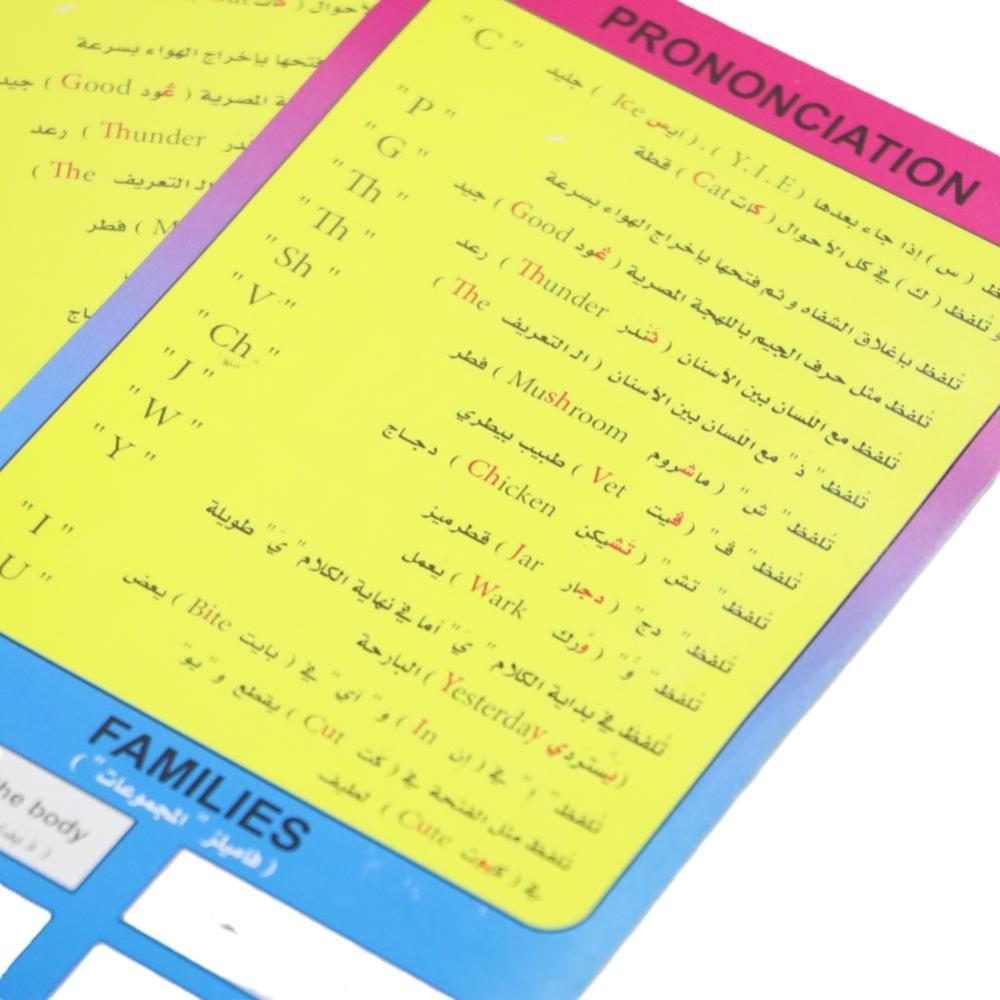 PRONONCIATION
"C"
( س ) إذا جاء بعدها ( Y.I.E ) . ( ايس Ice ) جليد
و تُلفظ ( ك ) في كل الأحوال ( كات Cat ) قطة
"P" تُلفظ بإغلاق الشفاه و ثم فتحها بإخراج الهواء بسرعة
"G" تُلفظ مثل حرف الجيم باللهجة المصرية ( غُود Good ) جيد
"Th" تُلفظ مع اللّسان بين الأسنان ( ثَندَر Thunder ) رعد
"Th" تُلفظ" ذ" مع اللّسان بين الأسنان ( الـ التعريف The )
"Sh" تُلفظ" ش" ( ماشروم Mushroom ) فطر
"V" تُلفظ" ڤ" ( ڤيت Vet ) طبيب بيطري
"Ch" تُلفظ" تش" ( تشيكن Chicken ) دجاج
"J" تُلفظ" دج" ( دجار Jar ) قطرميز
"W" تُلفظ" وُ" ( وُرك Wark ) يعمل
"Y" تُلفظ في بداية الكلام" يَ" أما في نهاية الكلام" ي" طويلة
( يستردي Yesterday ) البارحة
"I" تُلفظ" إ" في ( إن In ) و" أي" في ( بايت Bite ) يعض
U" تُلفظ مثل الفتحة في ( كت Cut ) يقطع و"يو"
في ( كيوت Cute ) لطيف
FAMILIES
( فاميليز" المجموعات" )
he body
فتحها بإخراج الهواء بسرعة
ـة المصرية ( غُود Good ) جيد
Thunder ) رعد
الـ التعريف The )
) فطر